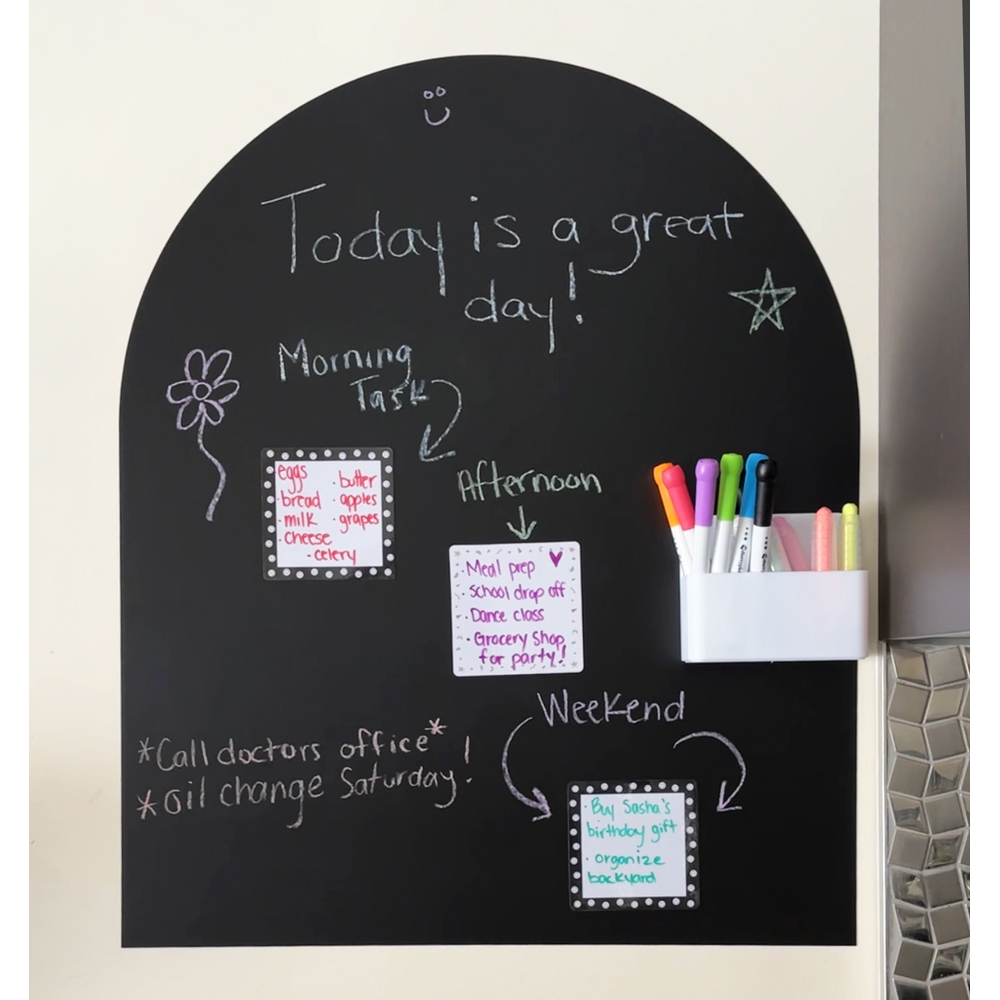 Today is a great
day!
Morning
Task
eggs
· butter
· bread
· apples
· milk
· grapes
· cheese
· celery
Afternoon
· Meal prep
· School drop off
· Dance class
· Grocery Shop
for party!
Weekend
*Call doctors office*
*oil change Saturday!
· Buy Sasha's
birthday gift
· organize
backyard